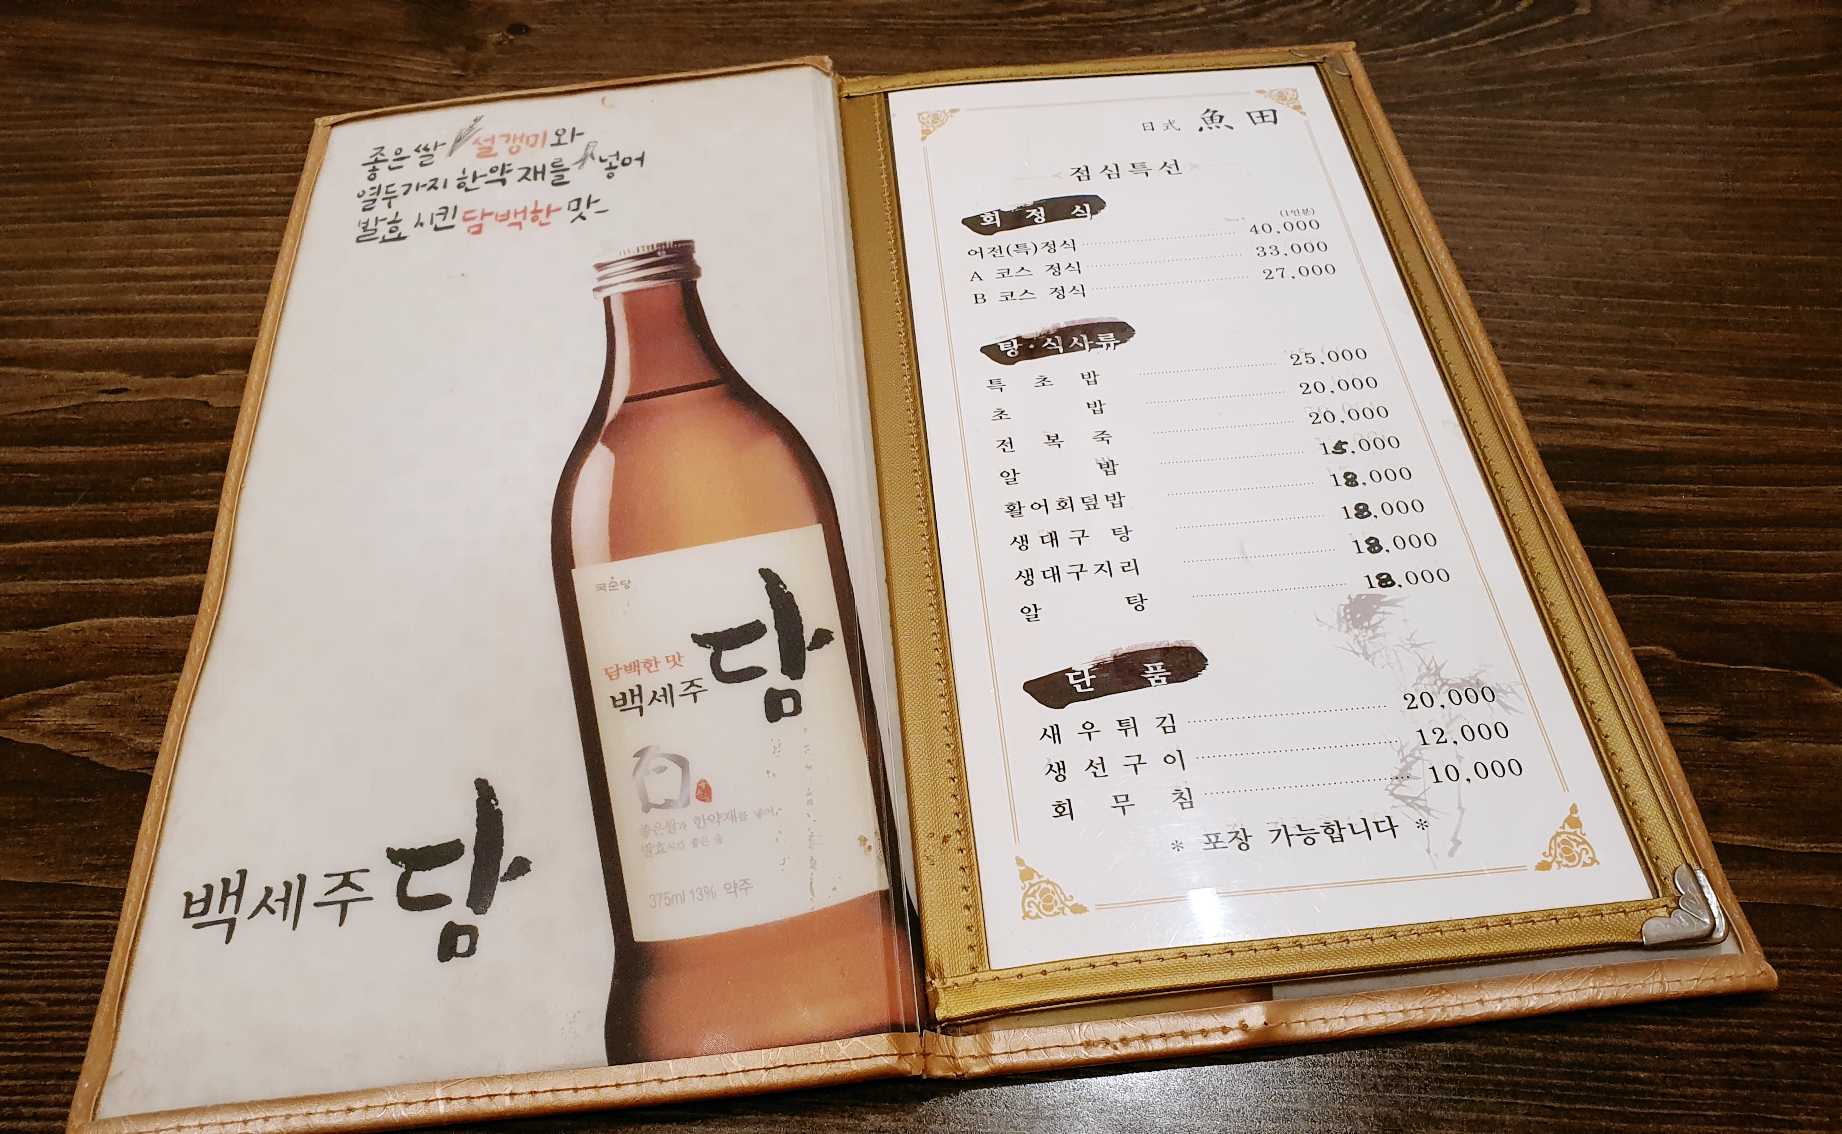 좋은 쌀 설갱미와
열두가지 한약재를 넣어
발효시킨 담백한 맛
국순당
담백한 맛
백세주 담
좋은쌀과 한약재를 넣어,
발효시킨 좋은 술
375ml 13% 약주
백세주 담
日式 魚田
점심특선
회정식
(1인분)
어전(특)정식 40,000
A 코스 정식 33,000
B 코스 정식 27,000
탕·식사류
특초밥 25,000
초밥 20,000
전복죽 20,000
알밥 15,000
활어회덮밥 18,000
생대구탕 18,000
생대구지리 18,000
알탕 18,000
단품
새우튀김 20,000
생선구이 12,000
회무침 10,000
* 포장 가능합니다 *